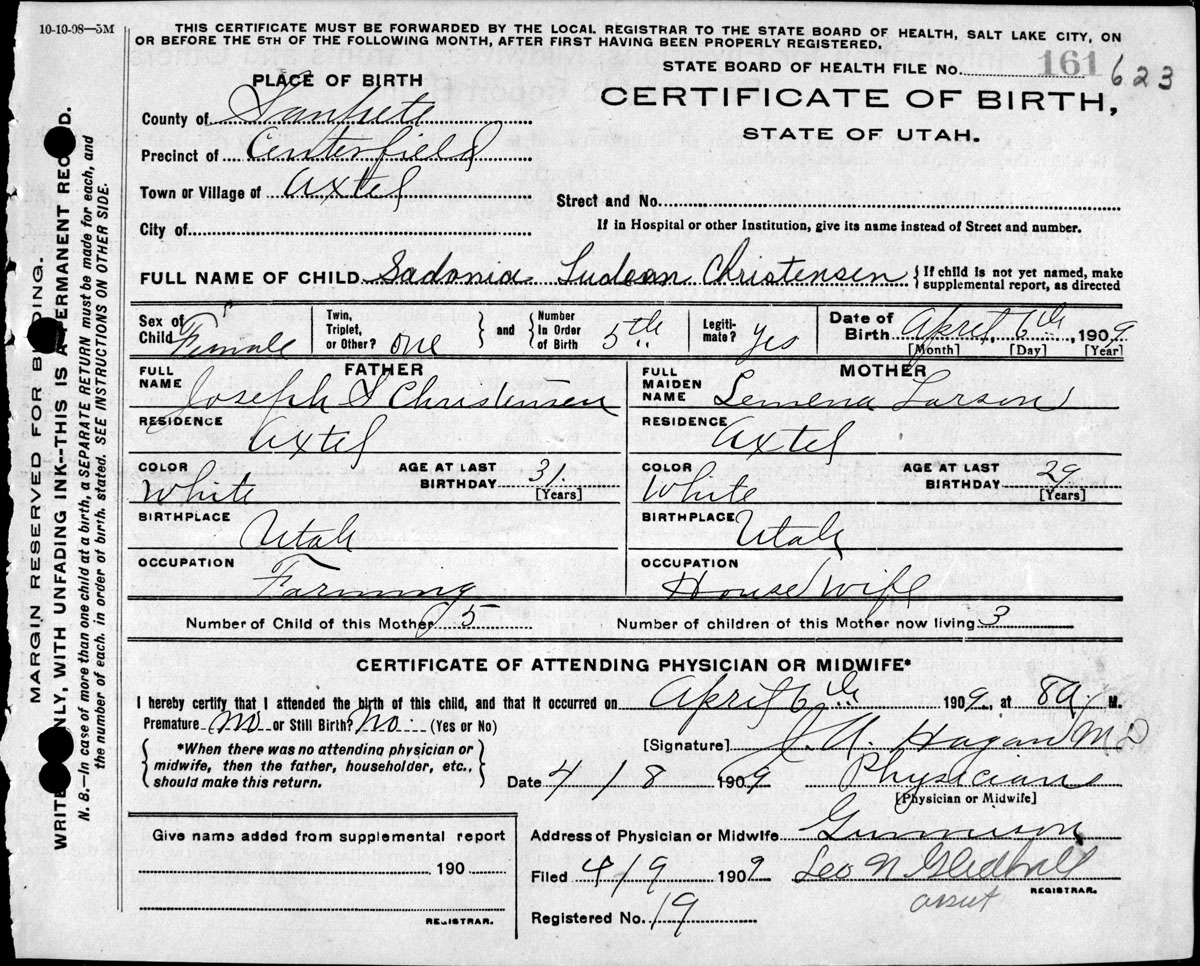 10-10-08—5M
THIS CERTIFICATE MUST BE FORWARDED BY THE LOCAL REGISTRAR TO THE STATE BOARD OF HEALTH, SALT LAKE CITY, ON
OR BEFORE THE 5TH OF THE FOLLOWING MONTH, AFTER FIRST HAVING BEEN PROPERLY REGISTERED.
STATE BOARD OF HEALTH FILE No. 161 623
PLACE OF BIRTH
CERTIFICATE OF BIRTH,
STATE OF UTAH.
County of Sanpete
Precinct of Centerfield
Town or Village of Axtel
Street and No.
City of
If in Hospital or other Institution, give its name instead of Street and number.
FULL NAME OF CHILD Sadonia Ludean Christensen {If child is not yet named, make
supplemental report, as directed
Sex of Child Female
Twin, Triplet, or Other? one
and
Number In Order of Birth 5th
Legiti-mate? Yes
Date of Birth April, 6th, 1909
[Month] [Day] [Year]
FATHER
FULL NAME Joseph Christensen
RESIDENCE Axtel
COLOR White
AGE AT LAST BIRTHDAY 31.
[Years]
BIRTHPLACE Utah
OCCUPATION Farming
MOTHER
FULL MAIDEN NAME Lemena Larson
RESIDENCE Axtel
COLOR White
AGE AT LAST BIRTHDAY 29
[Years]
BIRTHPLACE Utah
OCCUPATION House wife
Number of Child of this Mother 5
Number of children of this Mother now living 3
CERTIFICATE OF ATTENDING PHYSICIAN OR MIDWIFE*
I hereby certify that I attended the birth of this child, and that it occurred on April 6th 1909, at 8 a. M.
Premature No or Still Birth? No. (Yes or No)
{*When there was no attending physician or
midwife, then the father, householder, etc.,
should make this return.}
[Signature] Hagan MD
Date 4/8 1909
Physician
[Physician or Midwife]
Give name added from supplemental report
190
REGISTRAR.
Address of Physician or Midwife Gunnison
Filed 4/9 1909 Leo N Gledhill
REGISTRAR.
Registered No. 19
MARGIN RESERVED FOR BINDING.
WRITE ONLY, WITH UNFADING INK--THIS IS A PERMANENT RECORD.
N. B.—In case of more than one child at a birth, a SEPARATE RETURN must be made for each, and
the number of each, in order of birth, stated. SEE INSTRUCTIONS ON OTHER SIDE.